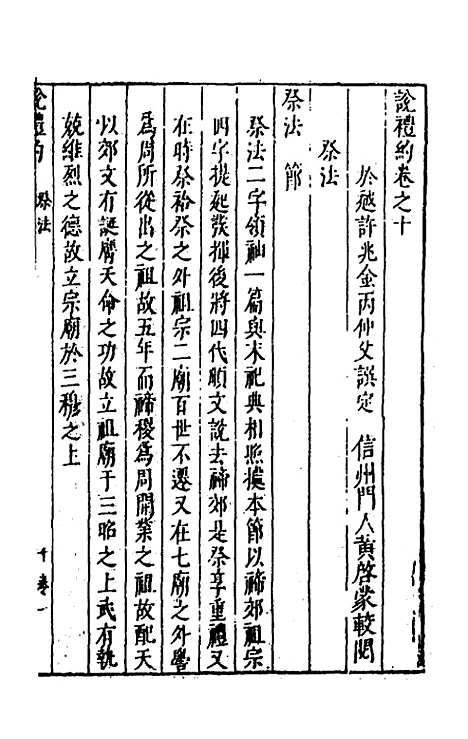 說禮約卷之十
於越許兆金丙仲父譔定 信州門人黃啓蒙較閱
祭法
祭法 節
祭法二字領袖一篇與末祀典相照摸本節以禘郊祖宗
四字提起發揮後將四代順文說去禘郊是祭享重禮又
在時祭祫祭之外祖宗二廟百世不遷又在七廟之外嚳
爲周所從出之祖故五年而禘稷爲周開業之祖故配天
以郊文有誕膺天命之功故立祖廟于三昭之上武有執
兢維烈之德故立宗廟於三穆之上
說禮約 祭法 十卷 一